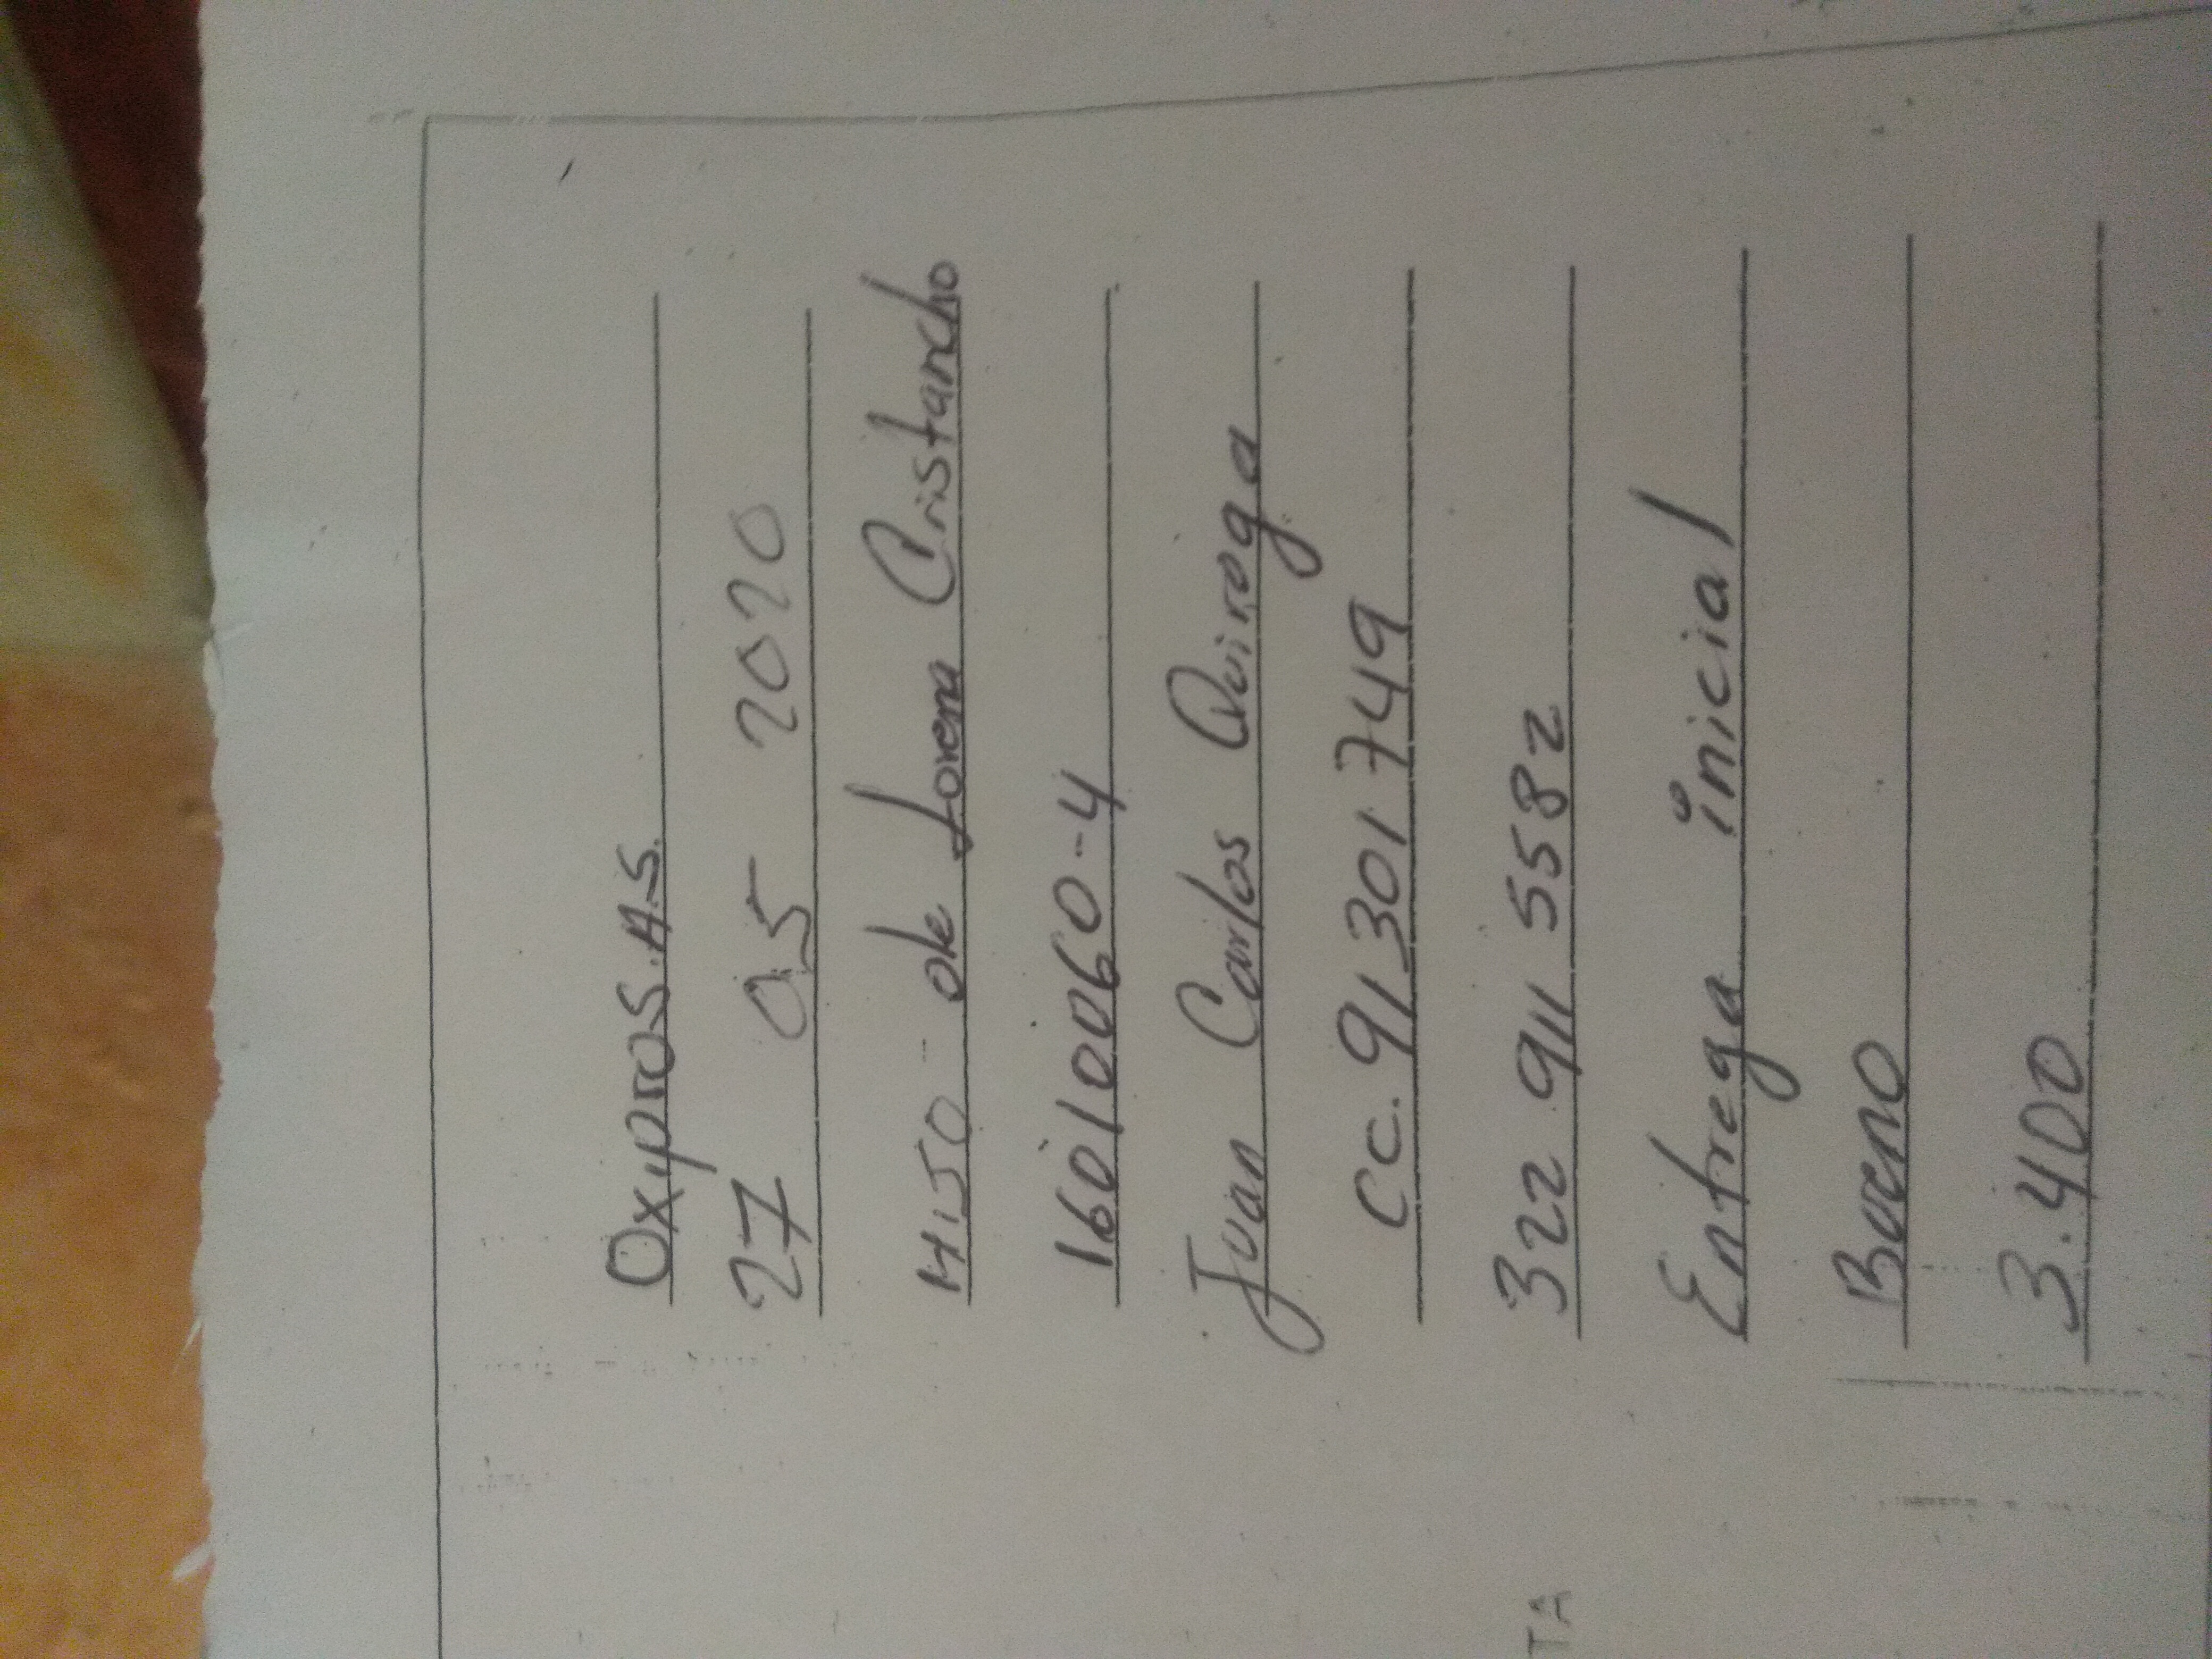 Oxypro S.A.S.
27 05 2020
HIJO de Lorena Cristancho
16010060-4
Juan Carlos Quiroga
CC. 91 301 749
322 911 5582
Entrega inicial
Bueno
3.400
TA